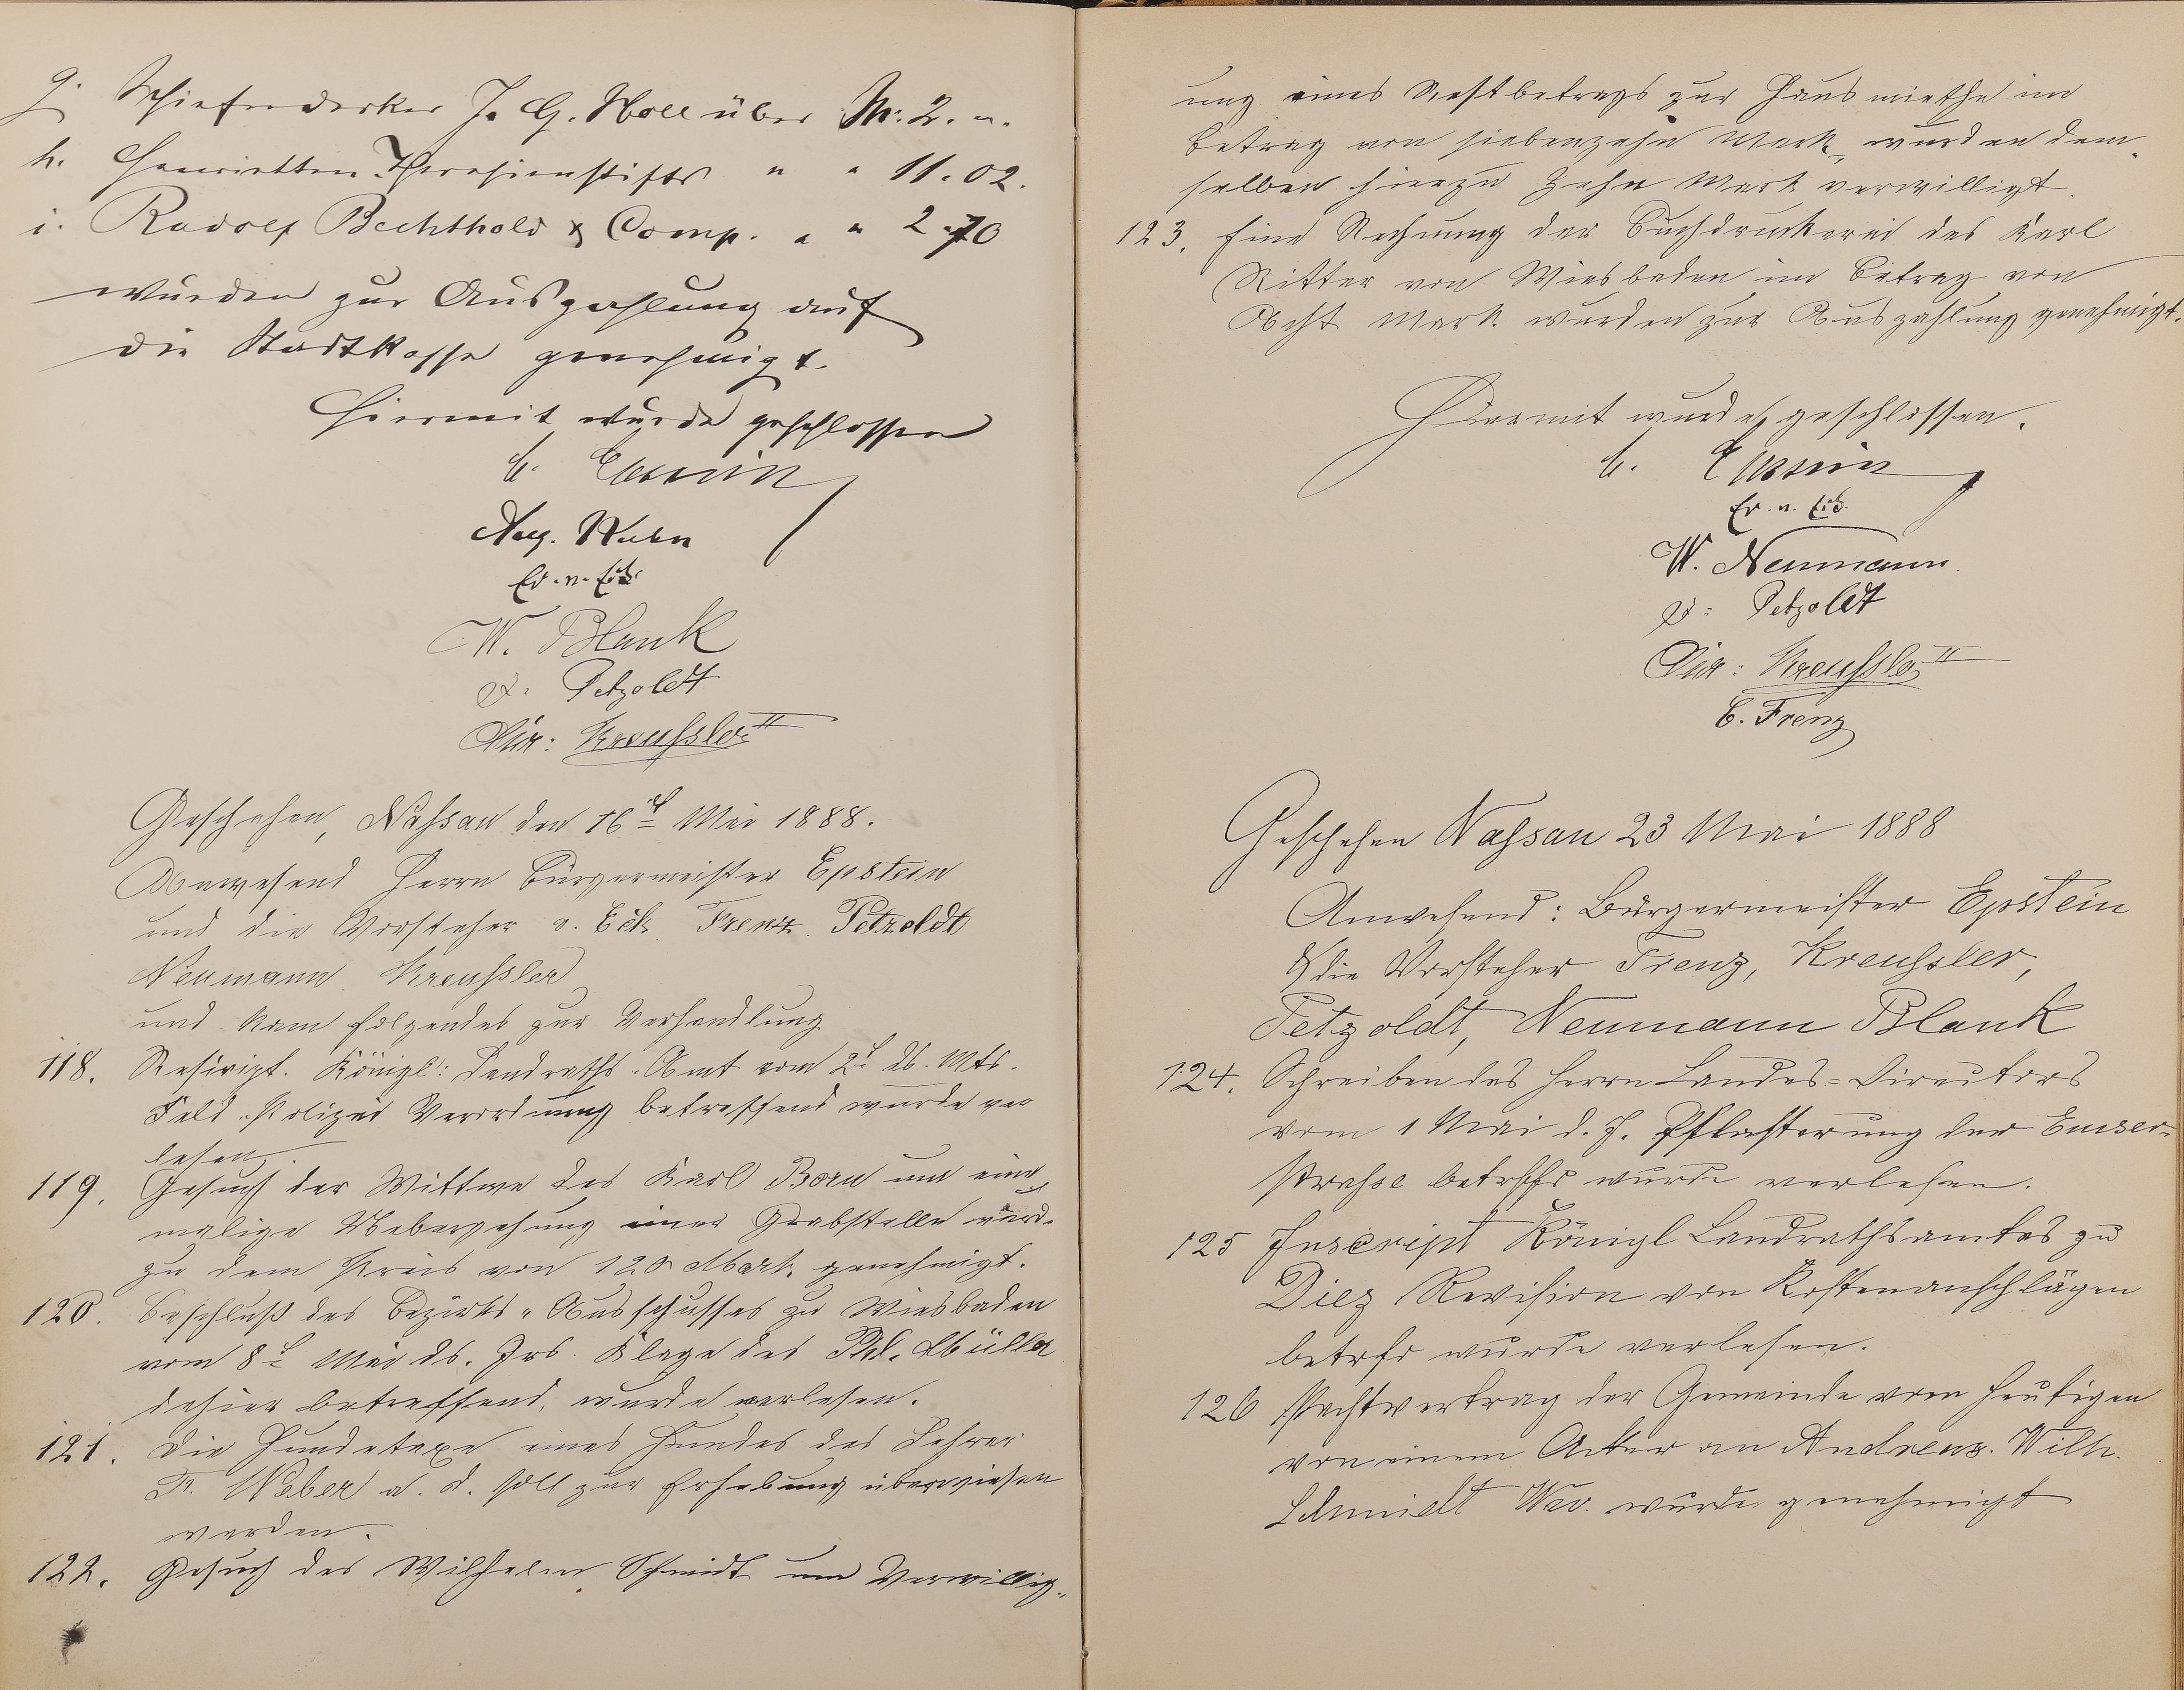 g. Schieferdecker J. G. Noll über M. 2. „.
h. Henrietten-Theresienstifts „ „ 11.02.
i. Rudolf Bechthold & Comp. „ „ 2.70
wurden zur Auszahlung auf
die Stadtkasse genehmigt.
Hiermit wurde geschlossen
C. Epstein
Aug. Kuhn
W. Blank
Petzoldt
Chr: Kreußler II
Geschehen, Naßau den 16t Mai 1888.
Anwesend Herrn Bürgermeister Epstein
und die Vorsteher v. Eck. Frenz. Petzoldt
Neumann. Kreußler
und kam folgendes zur Verhandlung
118. Rescript. Königl: Landraths-Amt vom 2t ds. Mts.
Feld-Polizei Verordnung betreffend wurde ver
lesen.
119. Gesuch der Wittwe des Karl Born um ein
malige Uebergehung einer Grabstelle wurd.
zu dem Preis von 120 Mark genehmigt.
120. Beschluß des Bezirks-Ausschusses zu Wiesbaden
vom 8t Mai ds. Jrs. Klage des Phl. Müller
dahier betreffend, wurde verlesen.
121. Die Hundetaxe eines Hundes des Lehrer
Fr. Weber a. d. soll zur Erhebung überwiesen
werden.
122. Gesuch des Wilhelm Schmidt um Verwillig-
ung eines Restbetrags zur Hausmiethe im
Betrag von siebenzehn Mark, wurden dem-
selben hierzu Zehn Mark verwilligt.
123. Eine Rechnung der Buchdruckerei des Karl
Ritter von Wiesbaden im Betrag von
Acht Mark. wurden zur Auszahlung genehmigt.
Hiermit wurde geschlossen.
C. Epstein
W. Neumann
Petzoldt
Chr: Kreußler II
C. Frenz
Geschehen Naßau 23 Mai 1888
Anwesend: Bürgermeister Epstein
& die Vorsteher Frenz, Kreußler,
Petzoldt, Neumann Blank
124. Schreiben des Herrn Landes-Directors
vom 1 Mai d. J. Pflasterung der Emser-
straße betrffd wurde verlesen.
125 Inscript Königl Landrathsamtes zu
Diez Revision von Kostenanschlägen
betrfd wurde verlesen.
126 Pachtvertrag der Gemeinde vom heutigen
von einem Acker an Andreas Wilh.
Schmidt Wwe. wurde genehmigt